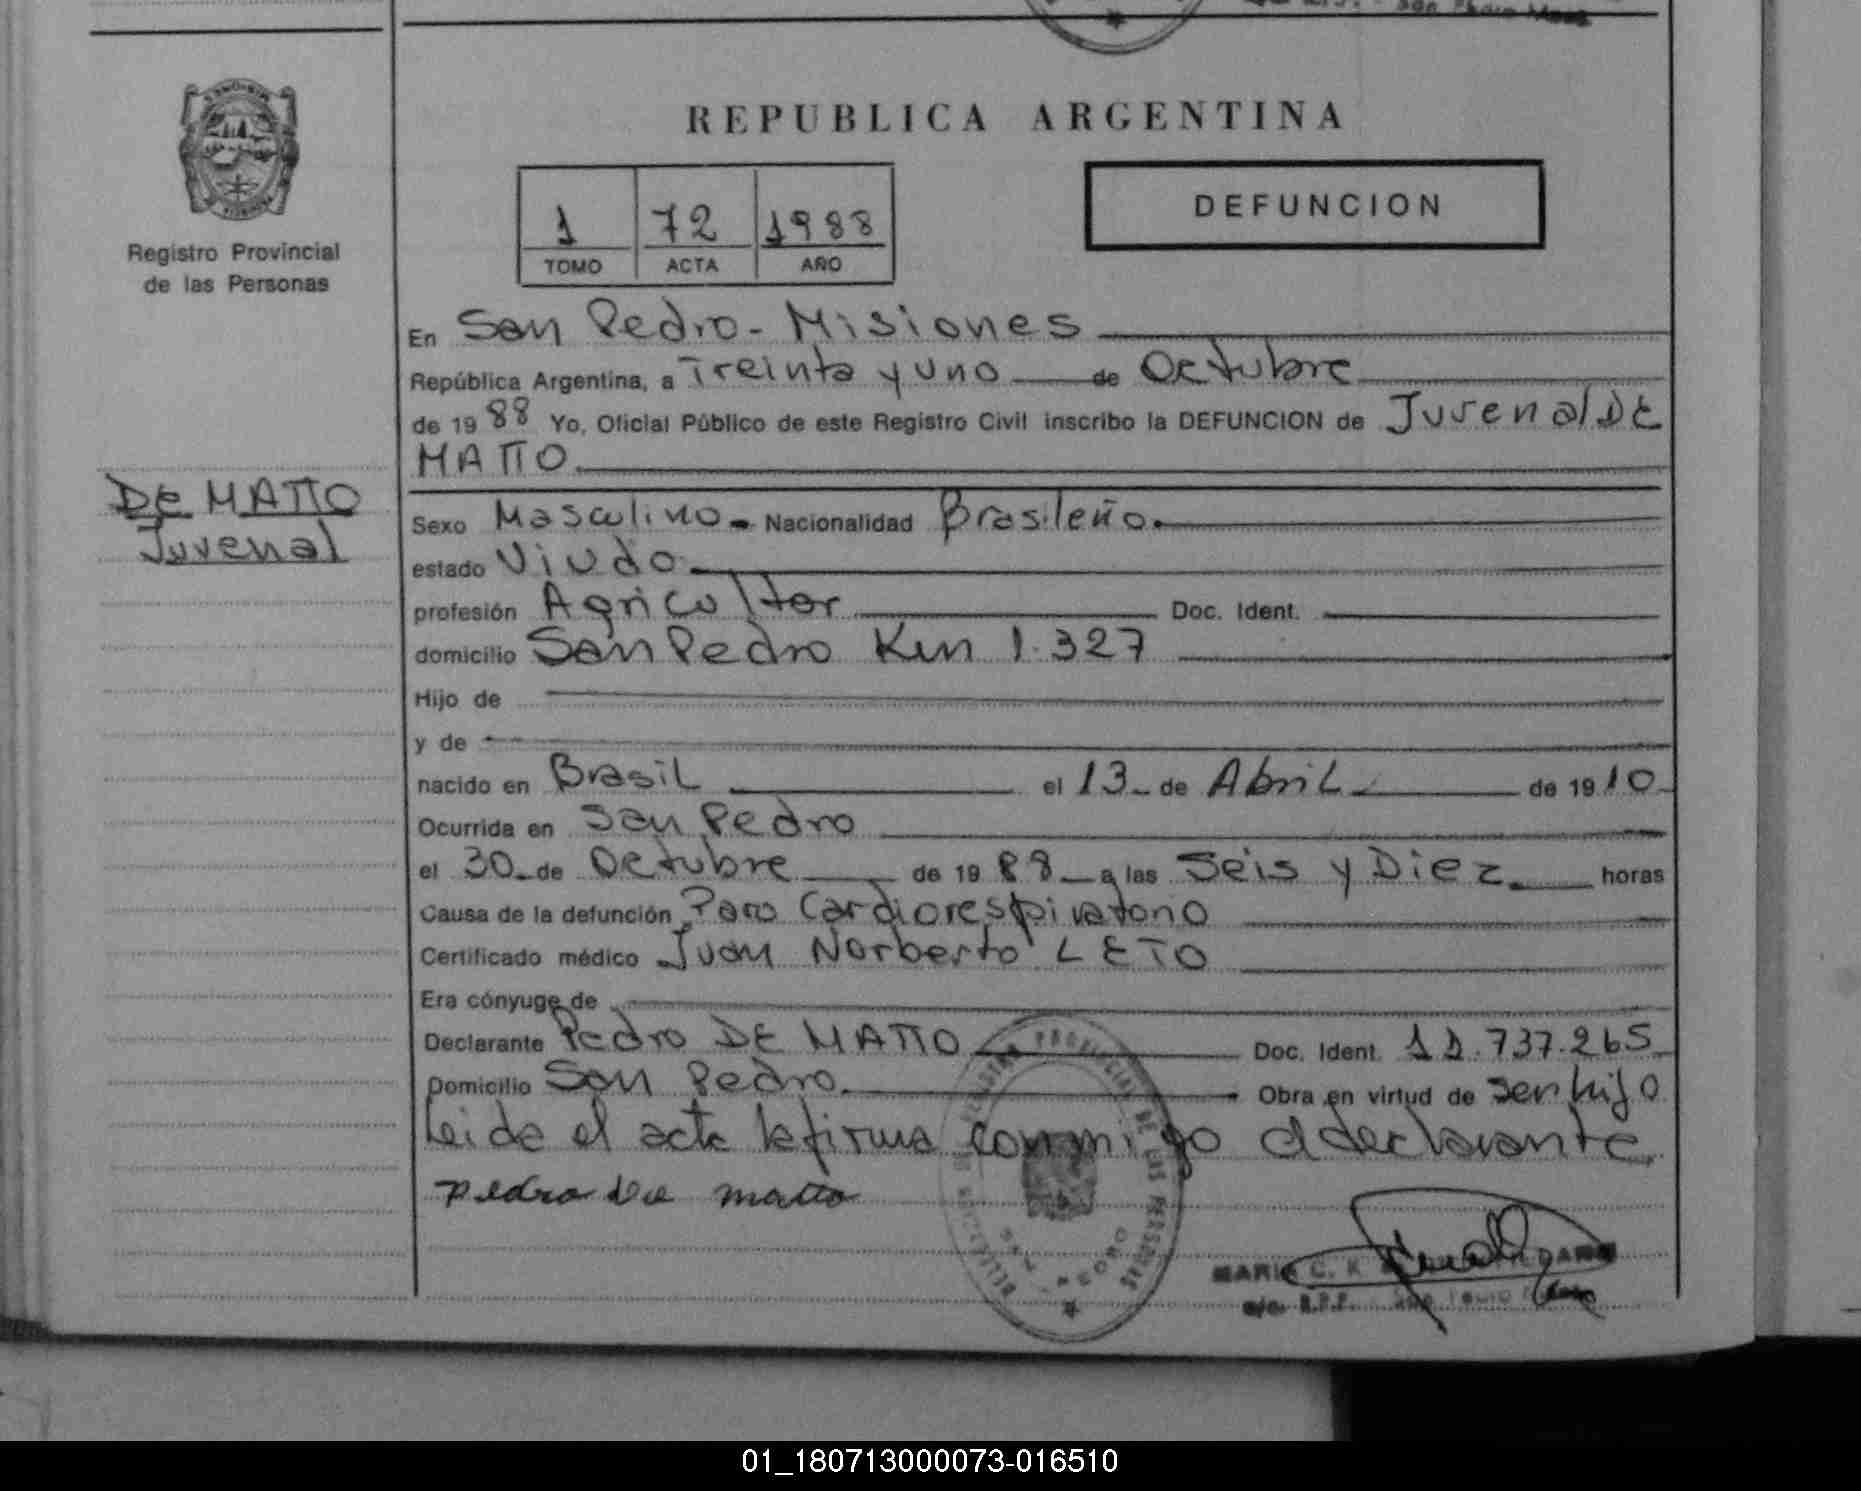 REPUBLICA ARGENTINA
Registro Provincial
de las Personas
1 72 1988
TOMO ACTA AÑO
DEFUNCION
En San Pedro - Misiones
República Argentina, a Treinta y uno de Octubre
de 19 88 Yo, Oficial Público de este Registro Civil inscribo la DEFUNCION de Juvenal DE
MATTO
DE MATTO
Juvenal
Sexo Masculino Nacionalidad Brasileño.
estado Viudo
profesión Agricultor Doc. Ident.
domicilio San Pedro Km 1.327
Hijo de
y de
nacido en Brasil el 13 de Abril de 19 10
Ocurrida en San Pedro
el 30 de Octubre de 19 88 a las Seis y Diez horas
Causa de la defunción Paro Cardiorespiratorio
Certificado médico Juan Norberto LETO
Era cónyuge de
Declarante Pedro DE MATTO Doc. Ident. 11.737.265
Domicilio San Pedro. Obra en virtud de ser hijo
Leida el acta la firma conmigo el declarante
Pedro De matto
REGISTRO PROVINCIAL DE LAS PERSONAS
MARIA C. K
01_180713000073-016510